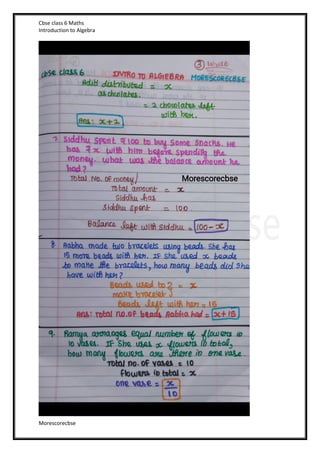 Cbse class 6 Maths
Introduction to Algebra
③
cbse class 6 INTRO TO ALGEBRA MORESCORECBSE
Aditi distributed = x
as choclates.
= 2 chocolates left
with her.
Ans: x+2
7. Siddhu spent ₹100 to buy some snacks. He
has ₹x with him before spending the
money. what was the balance amount he
had?
Total No. of money/ Morescorecbse
Total amount = x
Siddhu has
Siddhu spent = 100
Balance left with Siddhu = 100-x
8. Aabha made two bracelets using beads. She has
15 more beads with her. If she used x beads
to make the bracelets, how many beads did she
have with her?
Beads used to = x
make bracelet
Beads left with her = 15
Ans: Total no.of beads Aabha had = x+15
9. Ramya arranges equal number of flowers in
10 vases. If she uses x flowers in total,
how many flowers are there in one vase.
Total no. of vases = 10
Flowers in total = x
one vase = x
10
Morescorecbse